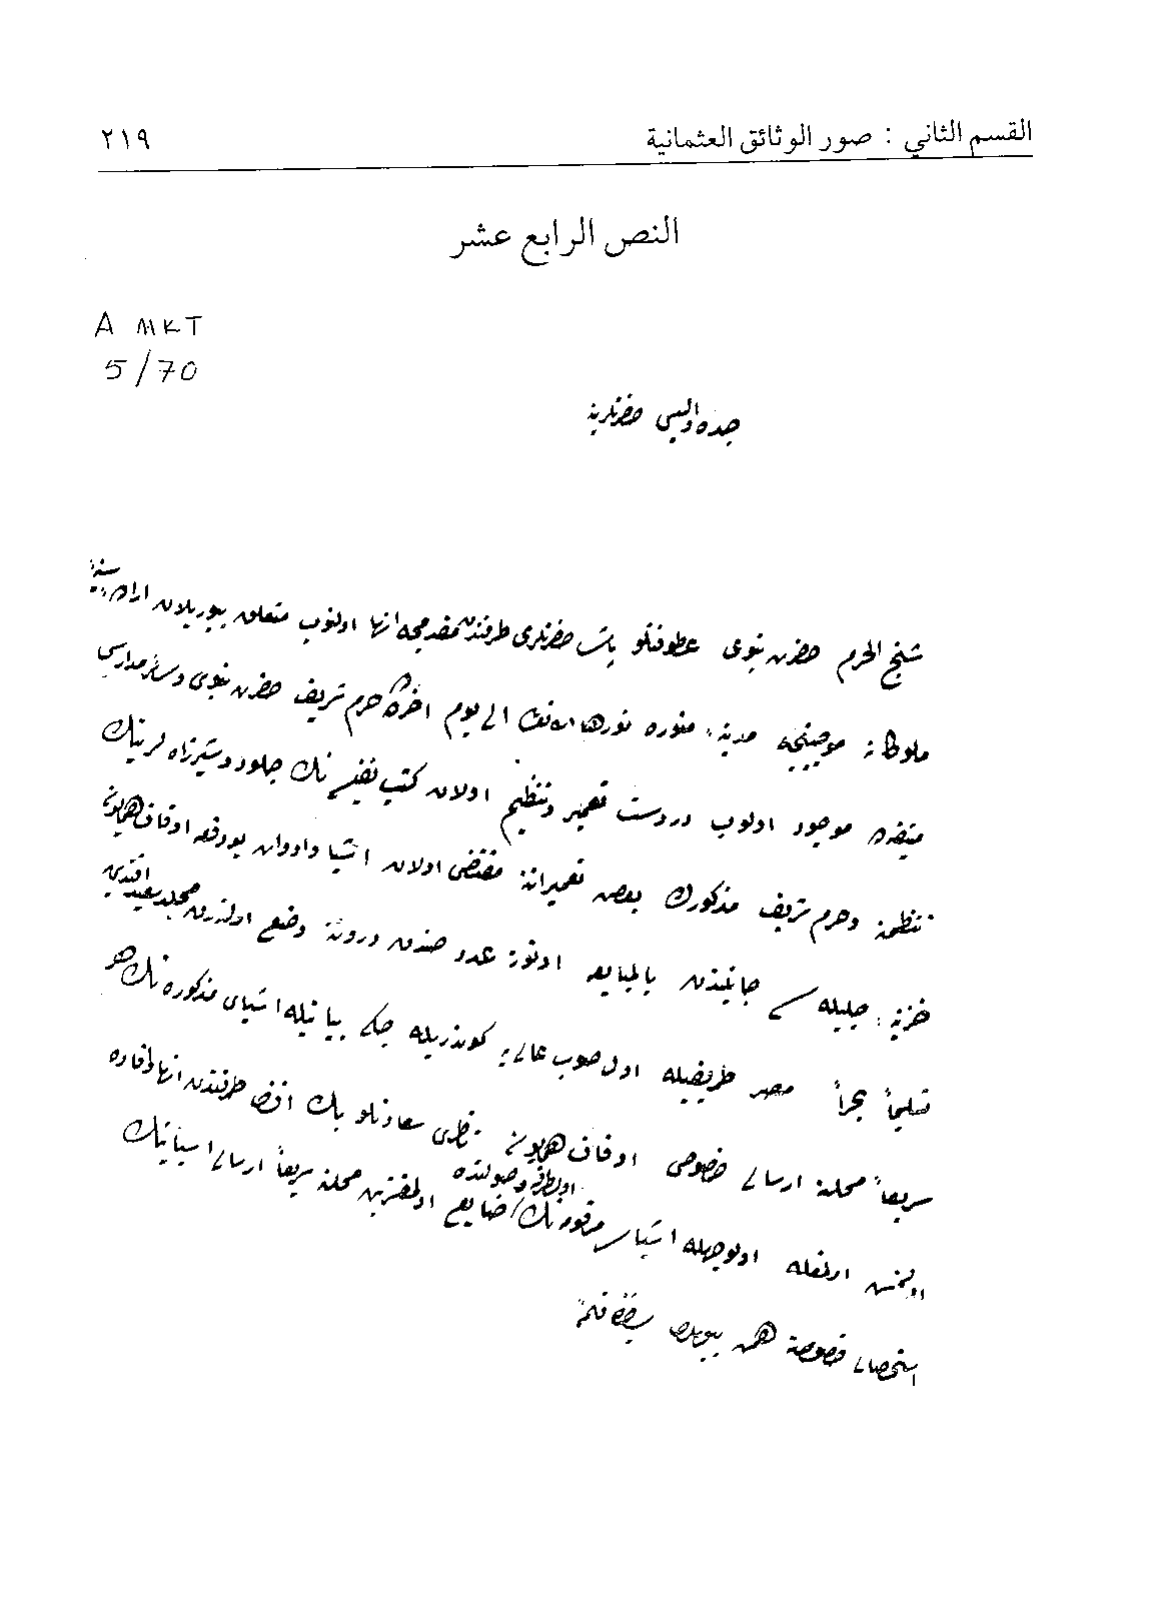 القسم الثاني : صور الوثائق العثمانية
٢١٩
النص الرابع عشر
A MKT
5/70
جده واليسي حضرتلرينه
شيخ الحرم حضرت نبوى عطوفتلو پاشا حضرتلرى طرفندن مقدمجه انها اولنوب متعلق بيوريلان اراده سنيه
ملوكانه موجبنجه مدينه منوره نورها الله تعالى الى يوم الآخره حرم شريف حضرت نبوى وسائر مدارس
موجود اولوب دردست تعمير وتنظيم اولان كتب نفيسه نك جلود وشيرازه لرينك
تنظيمنه وحرم شريف مذكورك بعض تعميراتنه مقتضى اولان اشيا وادوات بودفعه اوقاف همايون
خزينه جليله سى جانبندن بالمبايعه اوتوز عدد صندق دروننه وضع اولنه رق مجلد سعيد افندى
تسليماً بحراً مصر طريقيله اول صوب عالى يه كوندريله جكى بيانيله اشياى مذكوره نك
سريعاً محلنه ارسالى خصوصى اوقاف همايون ناظرى سعادتلو بك افندى طرفندن انها وافاده
اولنمش اولمغله اولوجهله اشياى مرقومه نك ضايع اولمقسزين محلنه سريعاً ارسالى اسبابنك
اولطرفه وصولنده
استحصالى خصوصنه همت بيورمق سياقنده قائمه